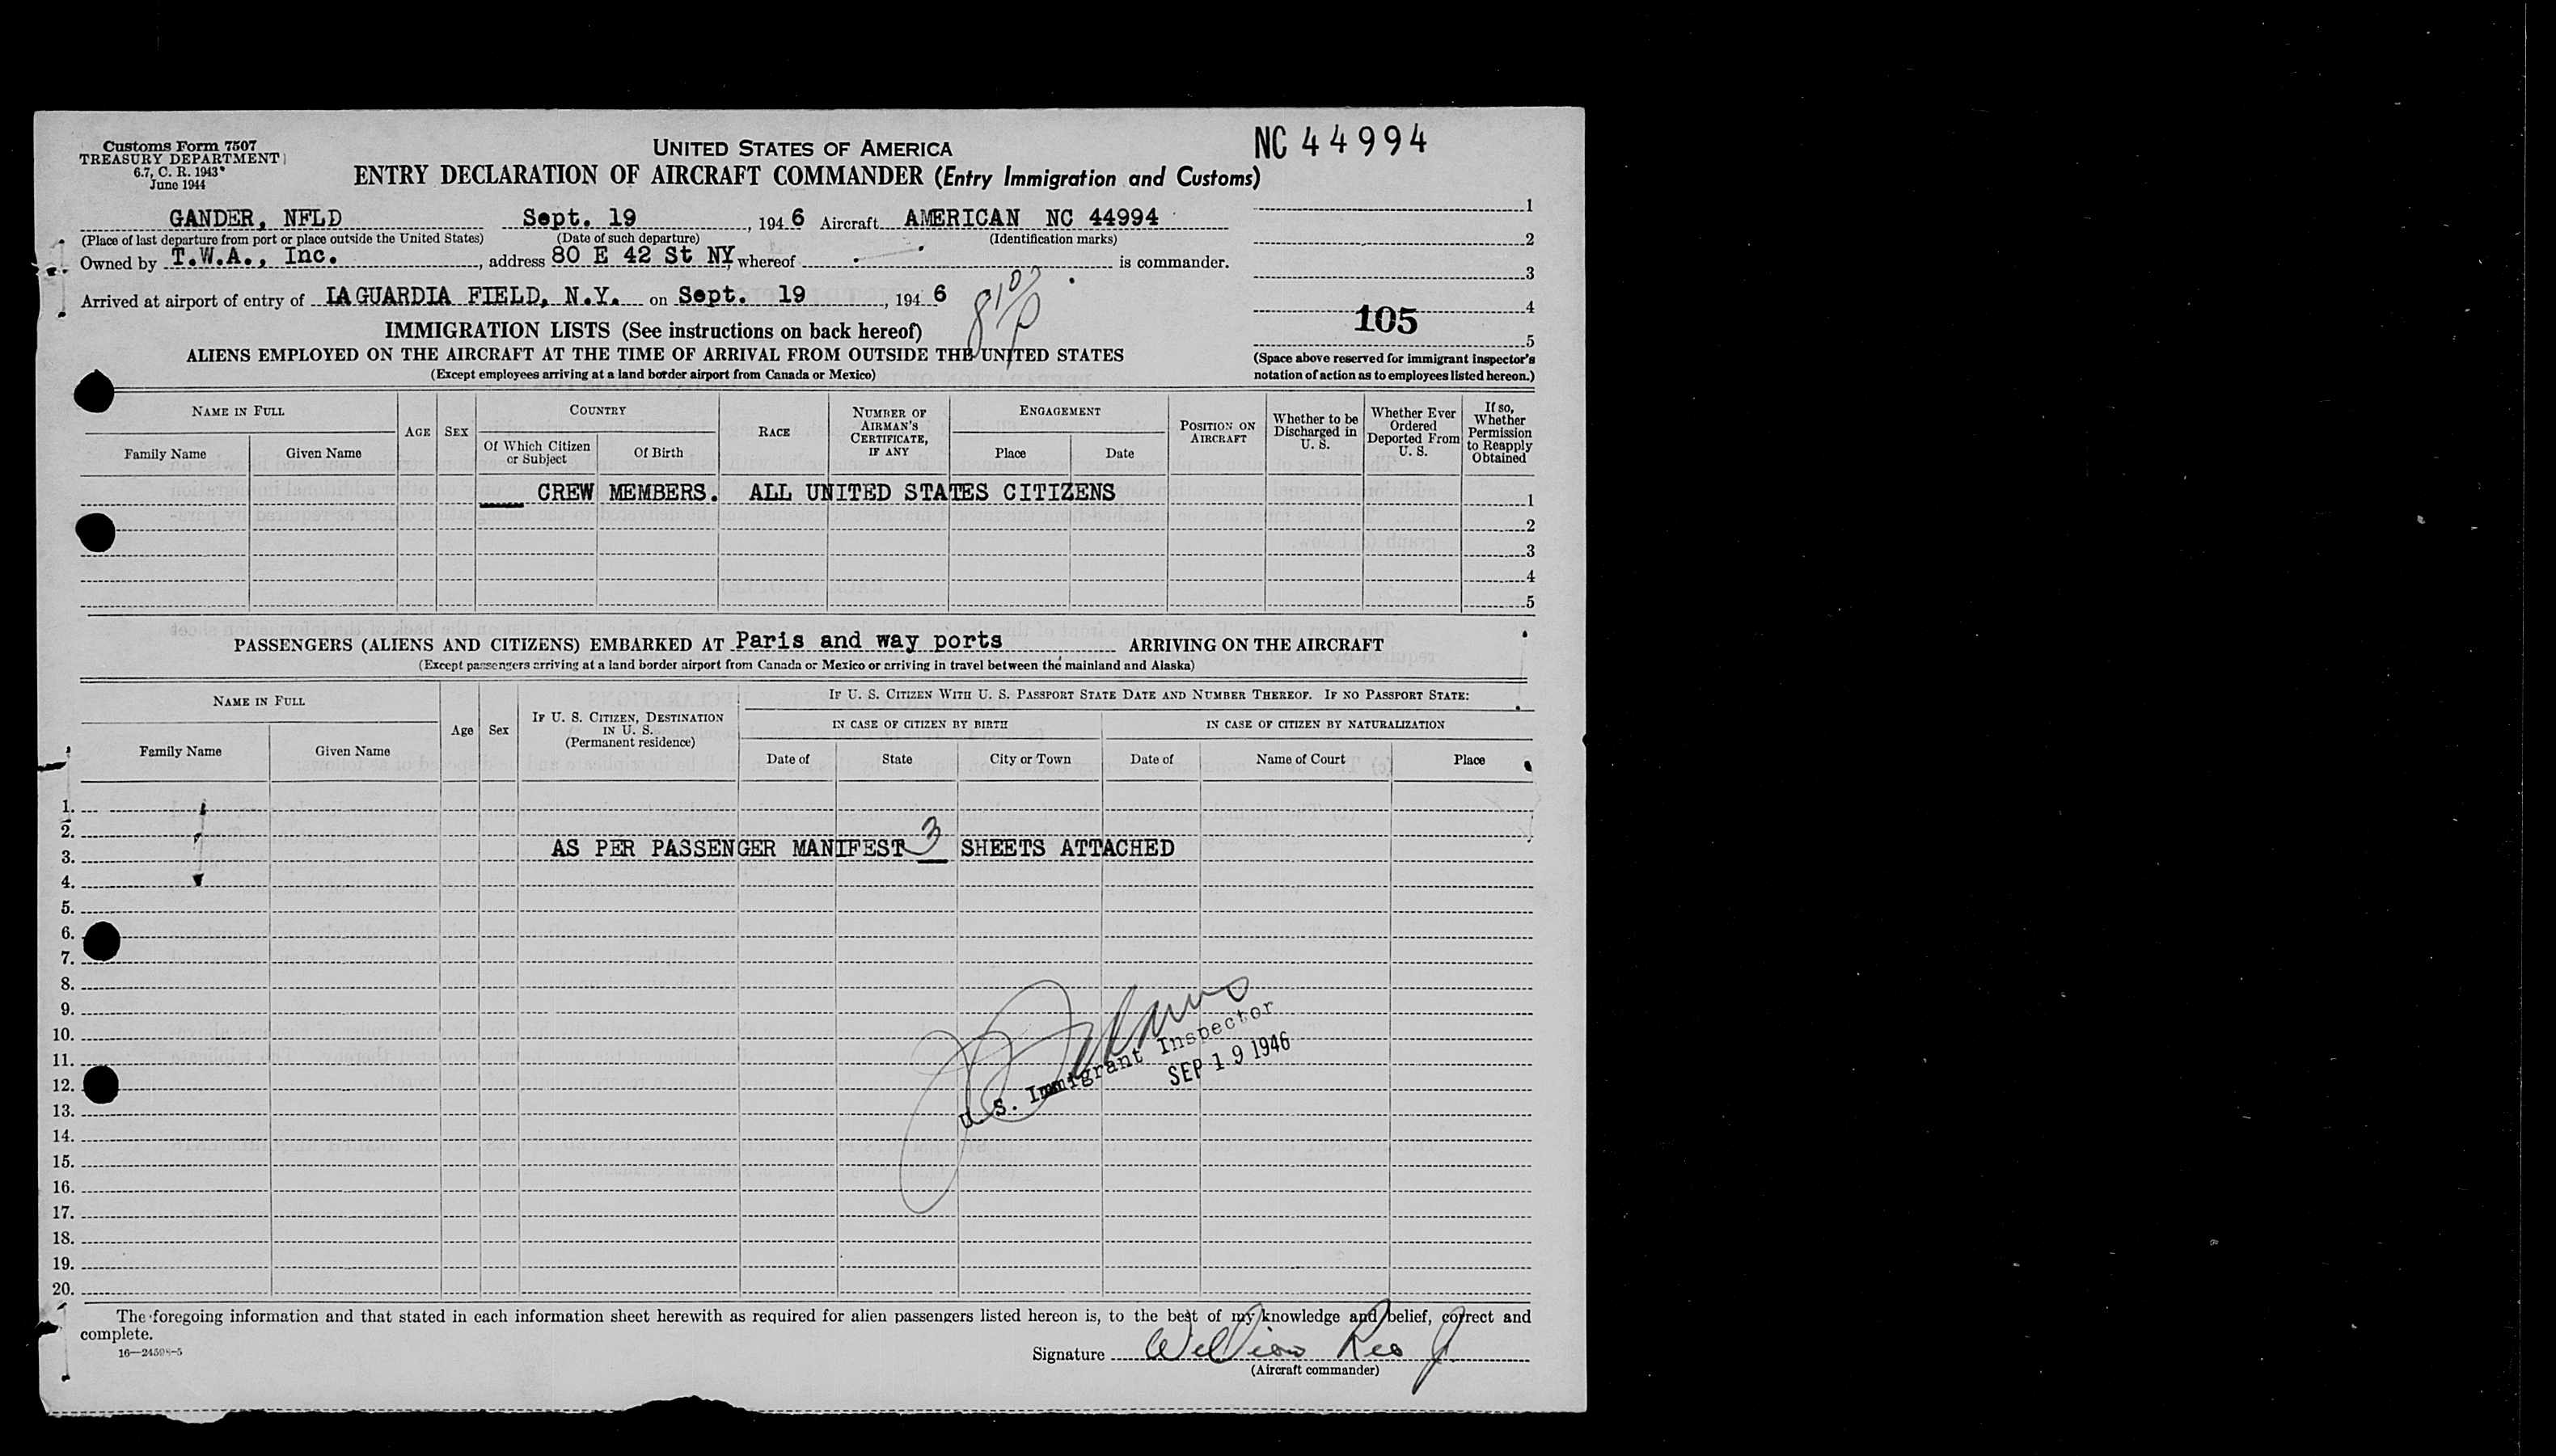 Customs Form 7507
TREASURY DEPARTMENT
6.7, C. R. 1943
June 1944
UNITED STATES OF AMERICA
NC 44994
ENTRY DECLARATION OF AIRCRAFT COMMANDER (Entry Immigration and Customs)
GANDER, NFLD Sept. 19, 194 6 Aircraft AMERICAN NC 44994
(Place of last departure from port or place outside the United States) (Date of such departure) (Identification marks)
Owned by T.W.A., Inc., address 80 E 42 St NY, whereof is commander.
Arrived at airport of entry of LA GUARDIA FIELD, N.Y. on Sept. 19, 194 6
1
2
3
4
5
105
(Space above reserved for immigrant inspector's
notation of action as to employees listed hereon.)
IMMIGRATION LISTS (See instructions on back hereof)
ALIENS EMPLOYED ON THE AIRCRAFT AT THE TIME OF ARRIVAL FROM OUTSIDE THE UNITED STATES
(Except employees arriving at a land border airport from Canada or Mexico)
NAME IN FULL
Family Name Given Name
AGE SEX
COUNTRY
Of Which Citizen or Subject
Of Birth
RACE
NUMBER OF AIRMAN'S CERTIFICATE, IF ANY
ENGAGEMENT
Place Date
POSITION ON AIRCRAFT
Whether to be Discharged in U. S.
Whether Ever Ordered Deported From U. S.
If so, Whether Permission to Reapply Obtained
CREW MEMBERS. ALL UNITED STATES CITIZENS 1
2
3
4
5
PASSENGERS (ALIENS AND CITIZENS) EMBARKED AT Paris and way ports ARRIVING ON THE AIRCRAFT
(Except passengers arriving at a land border airport from Canada or Mexico or arriving in travel between the mainland and Alaska)
NAME IN FULL
Family Name Given Name
Age Sex
IF U. S. CITIZEN, DESTINATION IN U. S.
(Permanent residence)
IF U. S. CITIZEN WITH U. S. PASSPORT STATE DATE AND NUMBER THEREOF. IF NO PASSPORT STATE:
IN CASE OF CITIZEN BY BIRTH IN CASE OF CITIZEN BY NATURALIZATION
Date of State City or Town Date of Name of Court Place
1.
2.
3. AS PER PASSENGER MANIFEST 3 SHEETS ATTACHED
4.
5.
6.
7.
8.
9.
10.
11.
12.
13.
14.
15.
16.
17.
18.
19.
20.
U. S. Immigrant Inspector
SEP 19 1946
The foregoing information and that stated in each information sheet herewith as required for alien passengers listed hereon is, to the best of my knowledge and belief, correct and
complete.
Signature William
(Aircraft commander)